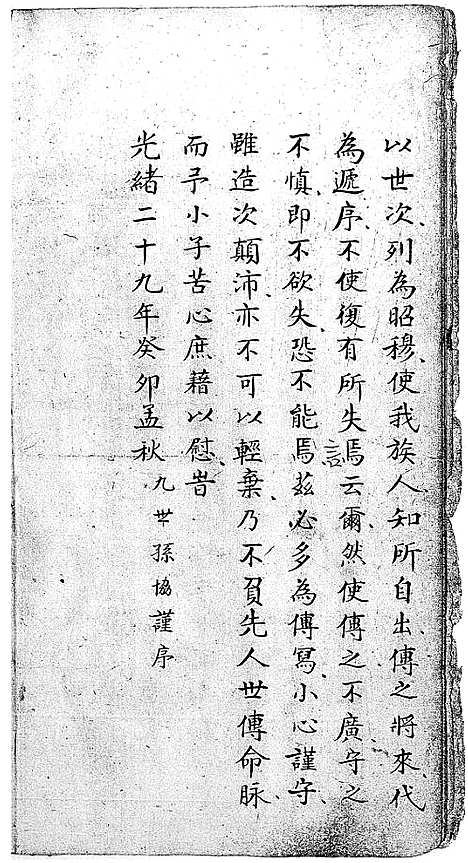 以世次、列為昭穆、使我族人知所自出、傳之將來、代
為遞序、不使復有所失焉云爾、然使傳之不廣、守之
言
不慎、即不欲失、恐不能焉、茲必多為傳寫、小心謹守、
雖造次顛沛、亦不可以輕棄、乃不負先人世傳命脉、
而予小子苦心庶藉以慰
光緒二十九年癸卯孟秋
九世孫協謹序